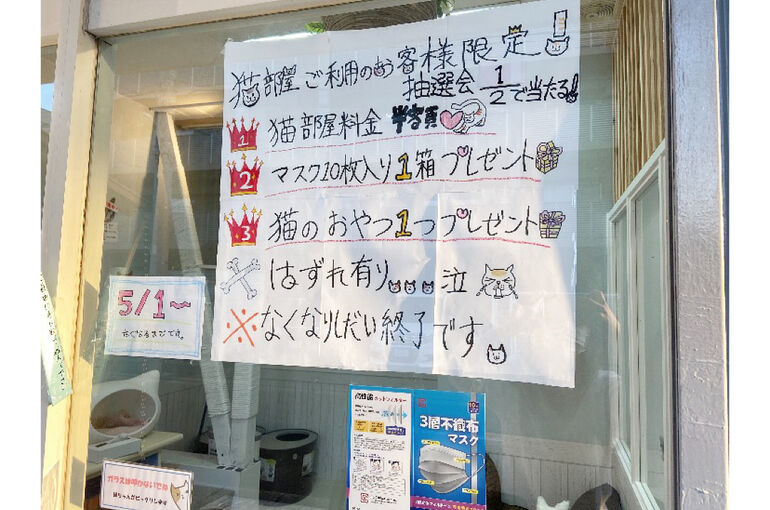 猫部屋ご利用のお客様限定!
抽選会1/2で当たる!
1 猫部屋料金半額
2 マスク10枚入り1箱プレゼント
3 猫のおやつ1つプレゼント
はずれ有り...泣
※なくなりしだい終了です。
5/1〜
なくなるまでです。
高性能
3層不織布
マスク
ガラスは叩かないでね
猫ちゃんがビックリします